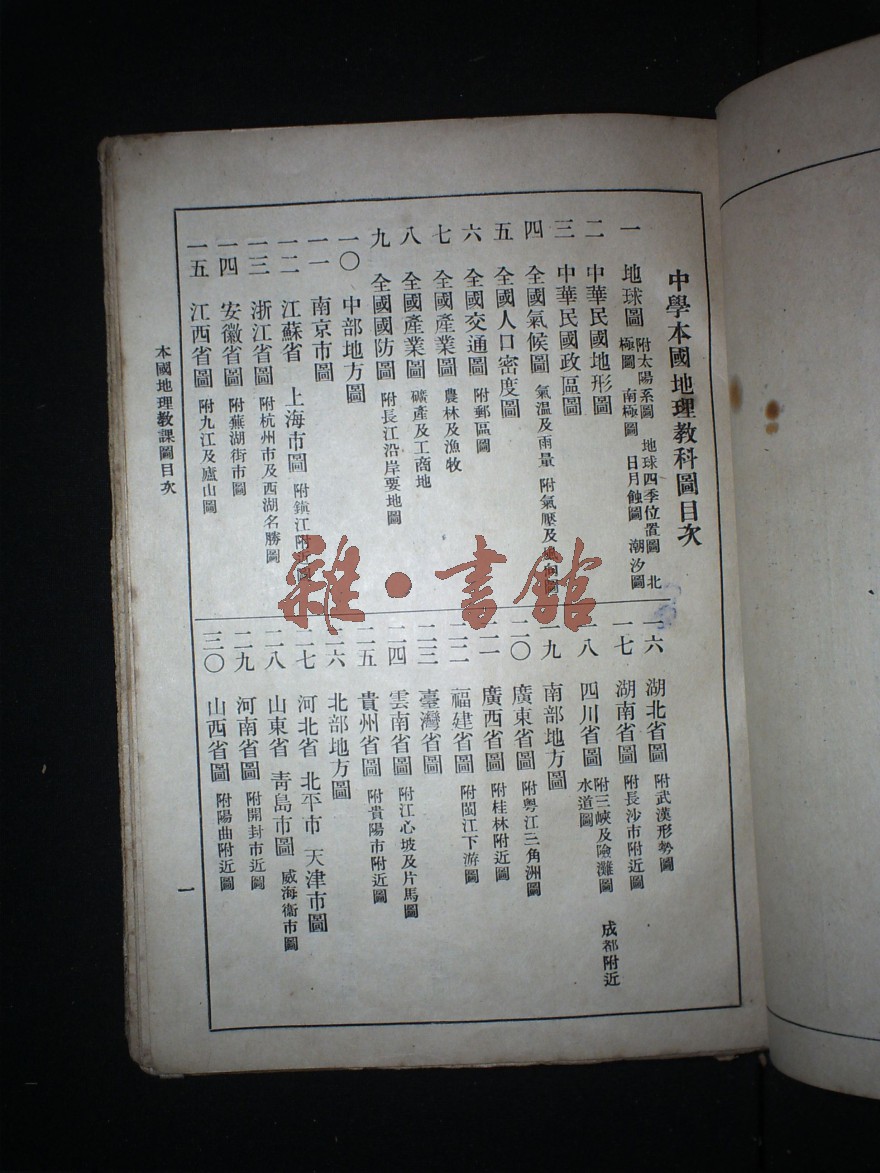 中學本國地理教科圖目次
一 地球圖 附太陽系圖 地球四季位置圖 北極圖 南極圖 日月蝕圖 潮汐圖
二 中華民國地形圖
三 中華民國政區圖
四 全國氣候圖 氣溫及雨量 附氣壓及
五 全國人口密度圖
六 全國交通圖 附郵區圖
七 全國產業圖 農林及漁牧
八 全國產業圖 礦產及工商地
九 全國國防圖 附長江沿岸要地圖
一〇 中部地方圖
一一 南京市圖
一二 江蘇省 上海市圖 附鎮江附近圖
一三 浙江省圖 附杭州市及西湖名勝圖
一四 安徽省圖 附蕪湖街市圖
一五 江西省圖 附九江及廬山圖
一六 湖北省圖 附武漢形勢圖
一七 湖南省圖 附長沙市附近圖
一八 四川省圖 附三峽及險灘圖 成都附近水道圖
一九 南部地方圖
二〇 廣東省圖 附粵江三角洲圖
二一 廣西省圖 附桂林附近圖
二二 福建省圖 附閩江下游圖
二三 臺灣省圖
二四 雲南省圖 附江心坡及片馬圖
二五 貴州省圖 附貴陽市附近圖
二六 北部地方圖
二七 河北省 北平市 天津市圖
二八 山東省 青島市圖 威海衞市圖
二九 河南省圖 附開封市近圖
三〇 山西省圖 附陽曲附近圖
本國地理教課圖目次
一
雜·書館